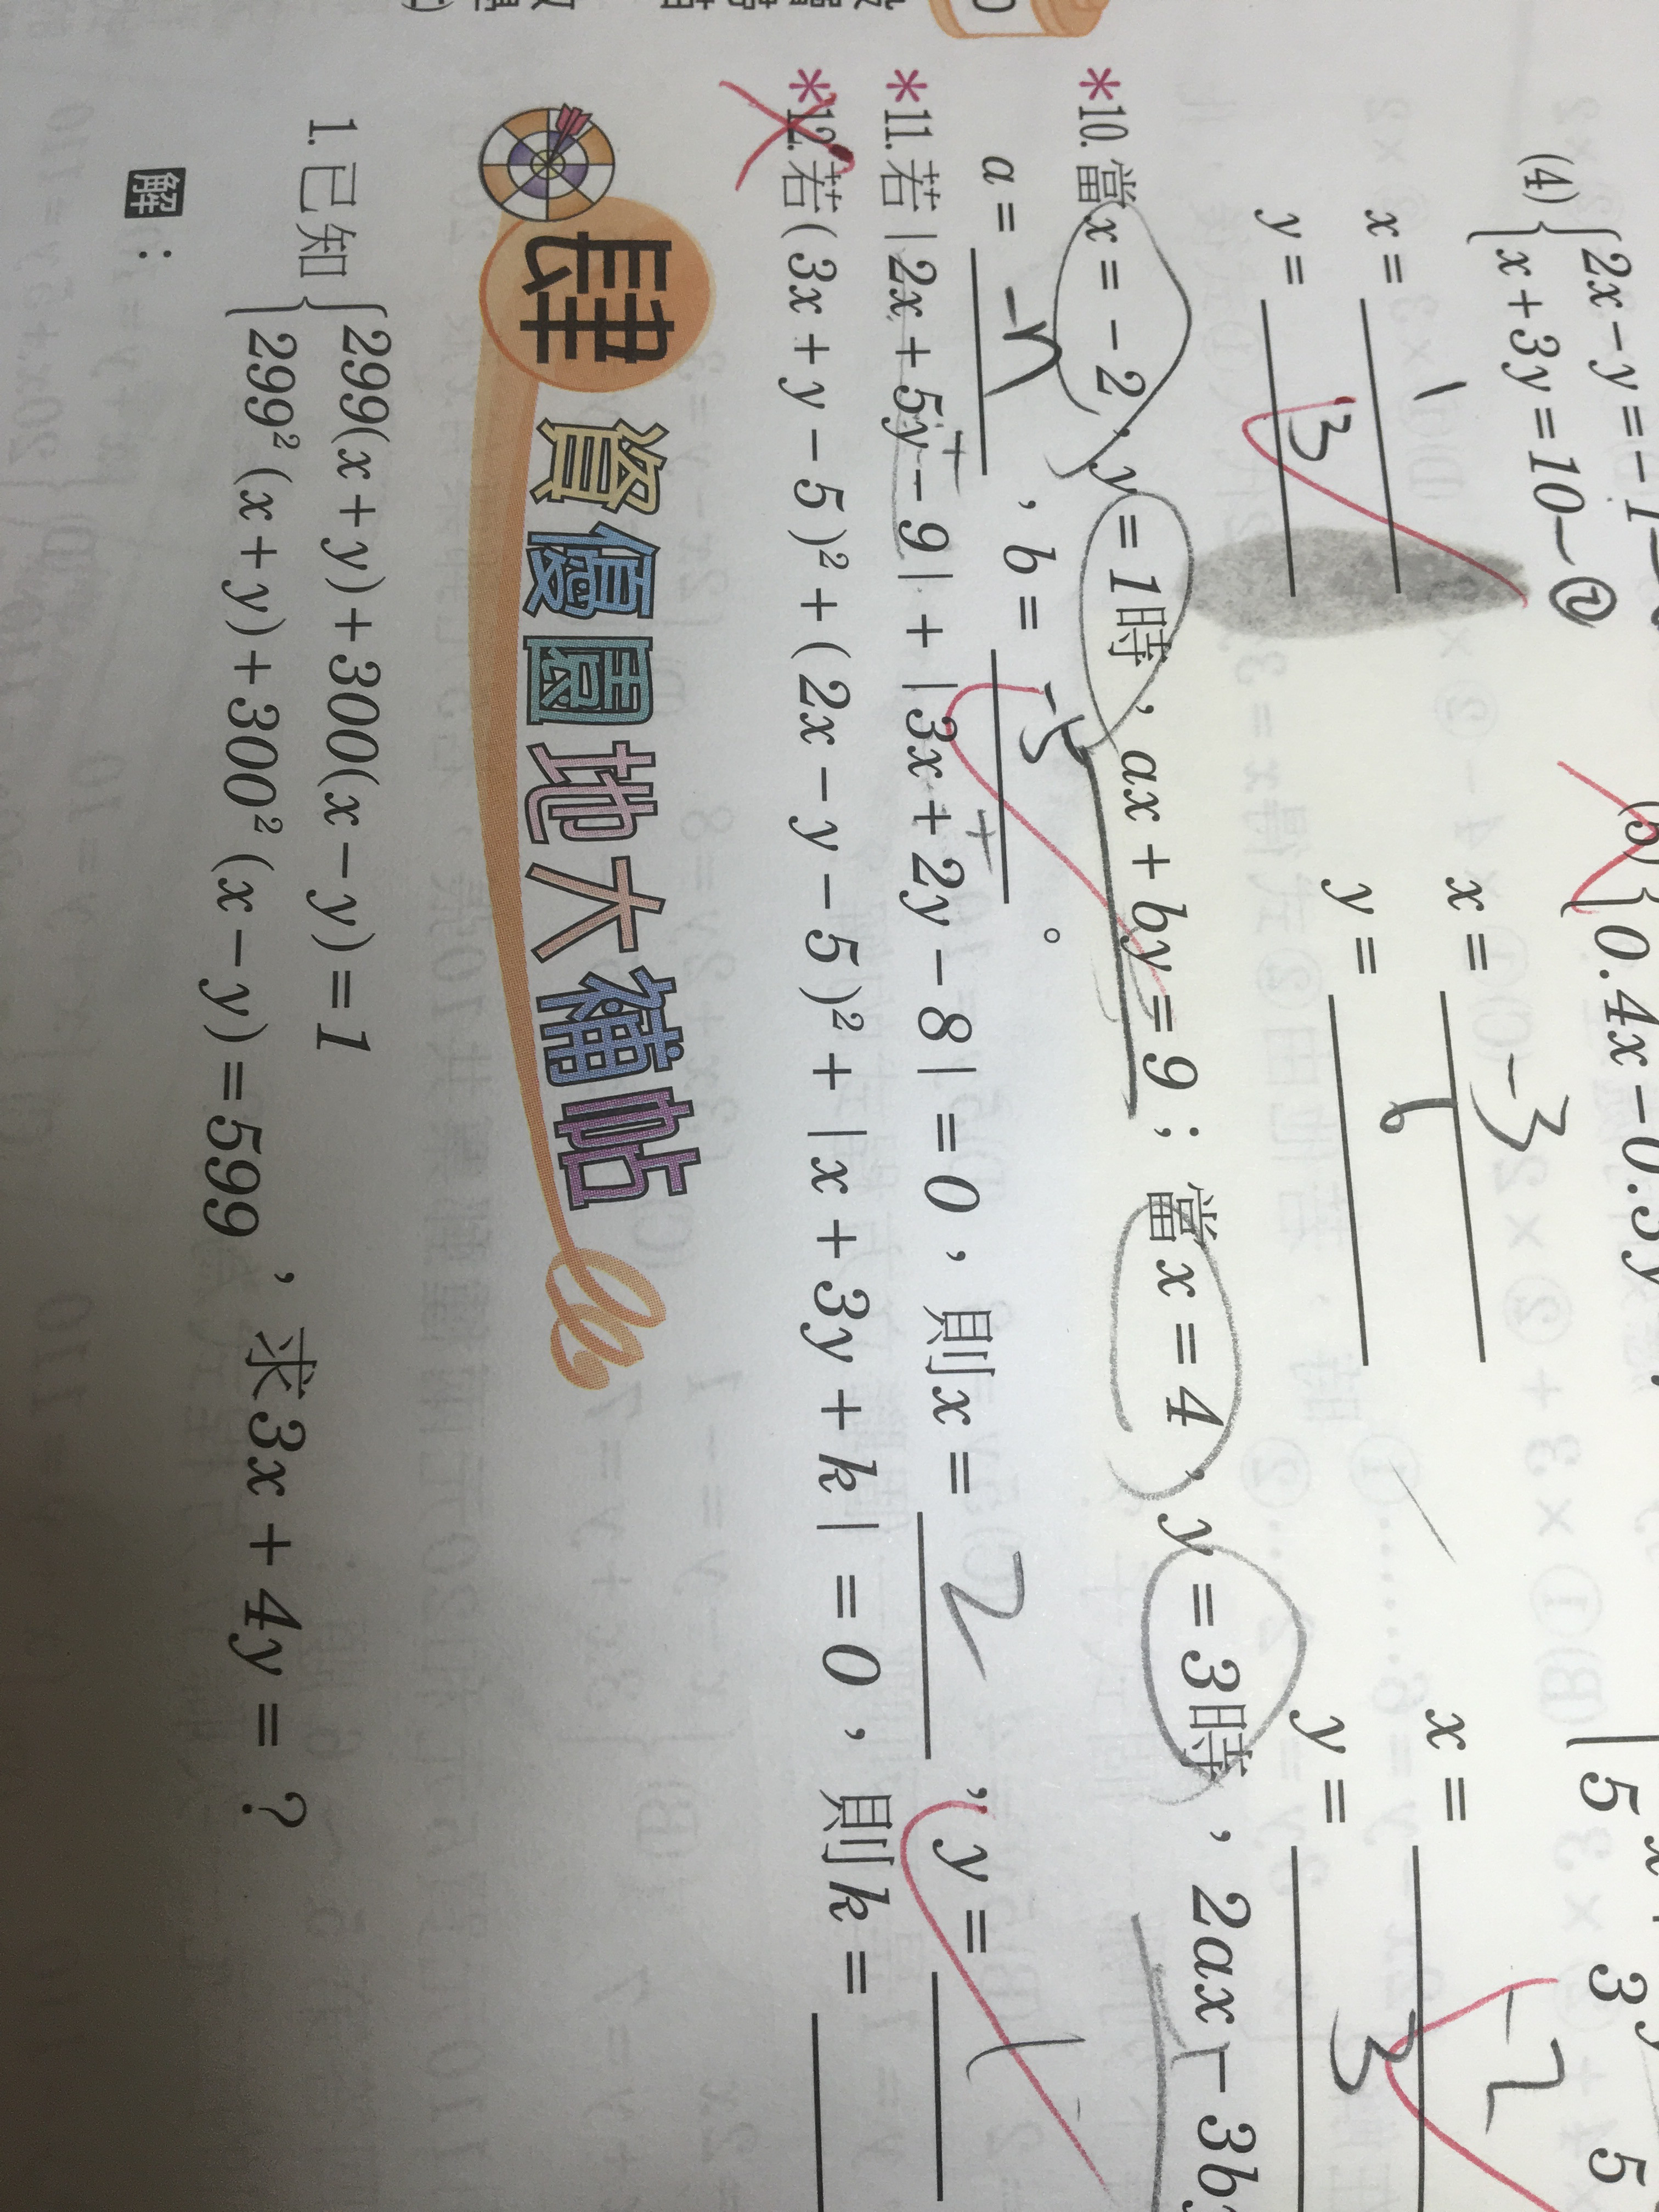 (4) {2x-y=-1
x+3y=10-②
(5) {0.4x-0.3y
x= 1
y= 3
x= -3
y= 6
x= -2
y= 3
*10.當x=-2,y=1時,ax+by=9;當x=4,y=3時,2ax-3by
a= -7 ,b= -5 。
*11.若|2x+5y-9|+|3x+2y-8|=0,則x= 2 ,y= 1
*12.若(3x+y-5)²+(2x-y-5)²+|x+3y+k|=0,則k=
肆 資優園地大補帖
1.已知{299(x+y)+300(x-y)=1
299²(x+y)+300²(x-y)=599 ,求3x+4y=?
解: